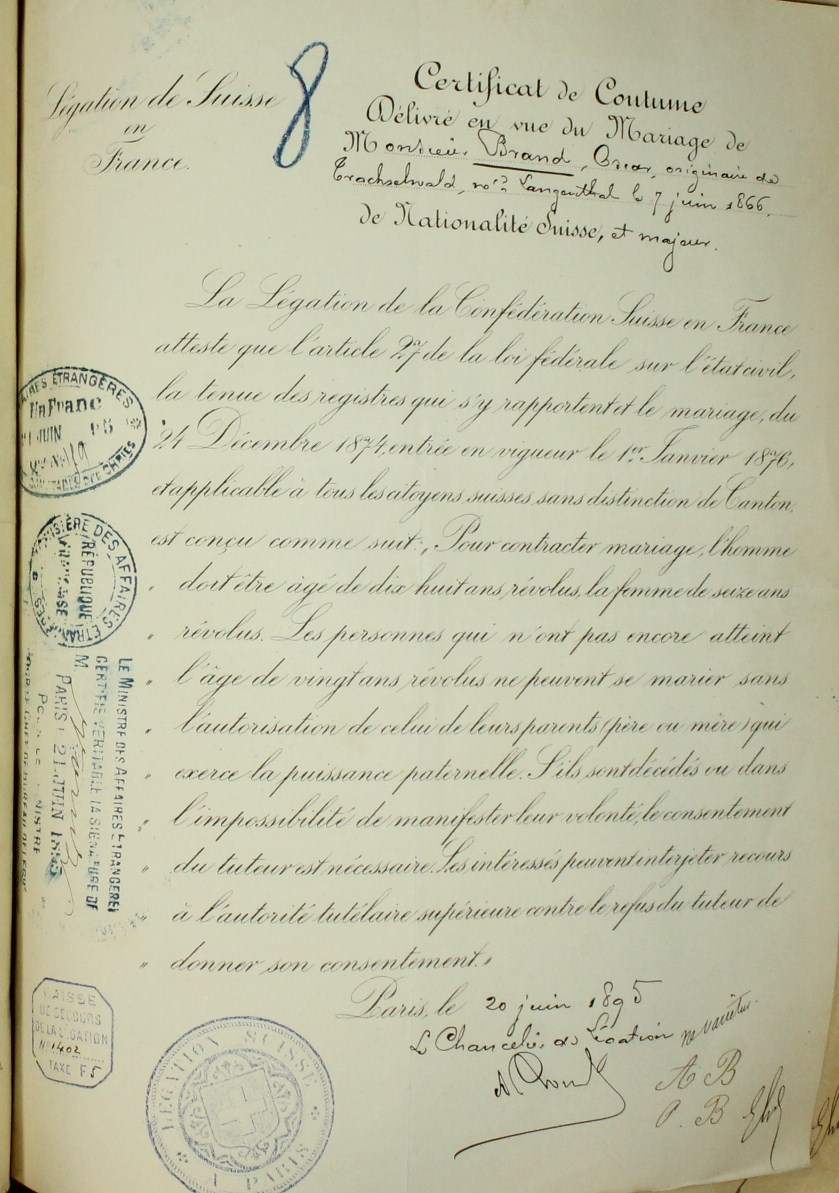 Légation de Suisse
en
France.
8
Certificat de Coutume
Délivré en vue du Mariage de
Monsieur Brand, Oscar, originaire de
Trachselwald, né à Langenthal le 7 juin 1866.
de Nationalité Suisse, et majeur.
La Légation de la Confédération Suisse en France
atteste que l'article 27 de la loi fédérale sur l'état civil,
la tenue des registres qui s'y rapportent et le mariage, du
24 Décembre 1874, entrée en vigueur le 1er Janvier 1876,
et applicable à tous les citoyens suisses, sans distinction de Canton,
est conçu comme suit: „Pour contracter mariage, l'homme
„ doit être âgé de dix huit ans, révolus, la femme de seize ans
„ révolus. Les personnes qui n'ont pas encore atteint
„ l'âge de vingt ans révolus ne peuvent se marier sans
„ l'autorisation de celui de leurs parents (père ou mère) qui
„ exerce la puissance paternelle. S'ils sont décédés ou dans
„ l'impossibilité de manifester leur volonté, le consentement
„ du tuteur est nécessaire. Les intéressés peuvent interjeter recours
„ à l'autorité tutélaire supérieure contre le refus du tuteur de
„ donner son consentement."
Paris, le 20 juin 1895
Le Chancelier de Légation
ne varietur.
A B
O. B
AIRES ÉTRANGÈRES
Un Franc
21 JUIN 95
MINISTÈRE DES AFFAIRES ÉTRANGÈRES
RÉPUBLIQUE
FRANÇAISE
LE MINISTRE DES AFFAIRES ETRANGERES
CERTIFIE VÉRITABLE LA SIGNATURE DE
M
PARIS, 21 JUIN 1895
POUR LE MINISTRE
CAISSE
DE SECOURS
DE LA LÉGATION
No 1402
TAXE F 5
LÉGATION SUISSE
A PARIS